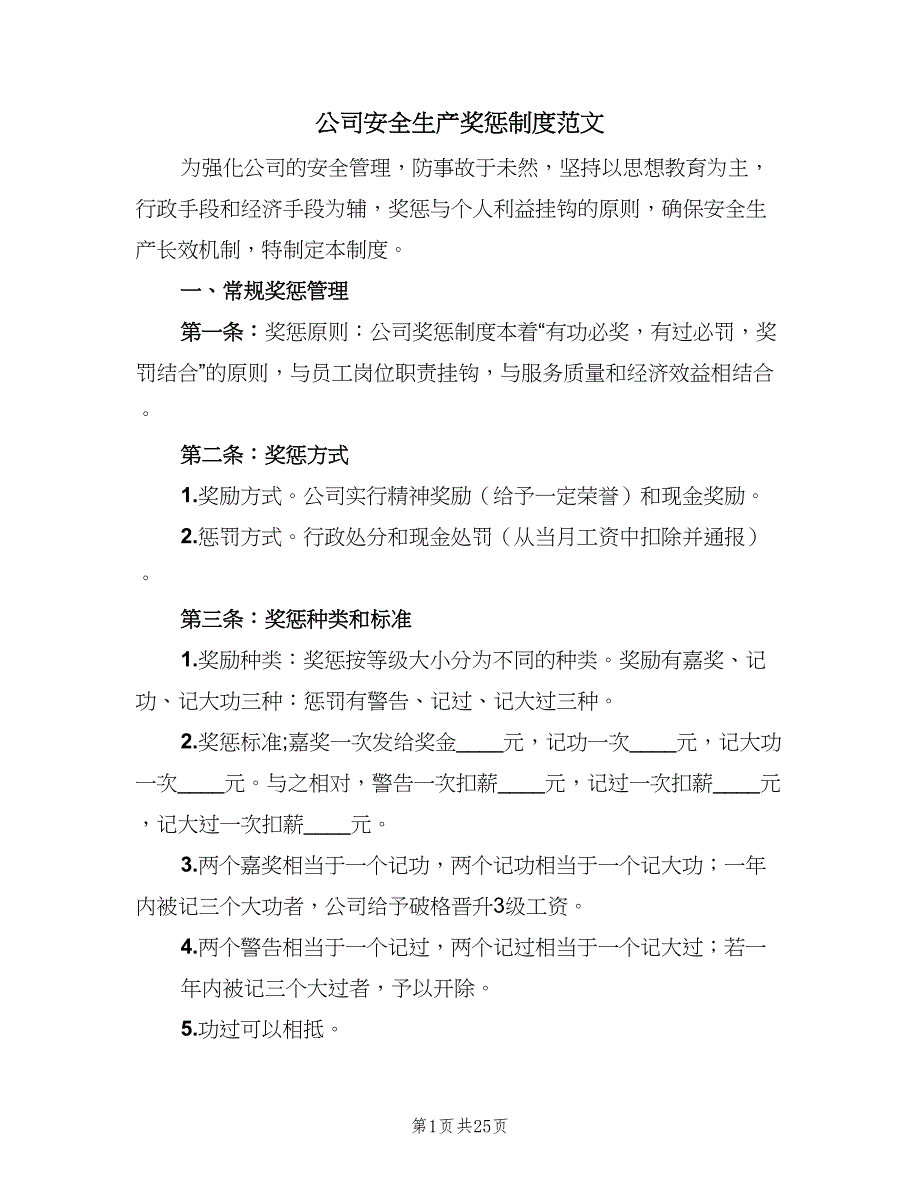 公司安全生产奖惩制度范文
为强化公司的安全管理，防事故于未然，坚持以思想教育为主，
行政手段和经济手段为辅，奖惩与个人利益挂钩的原则，确保安全生
产长效机制，特制定本制度。
一、常规奖惩管理
第一条：奖惩原则：公司奖惩制度本着“有功必奖，有过必罚，奖
罚结合”的原则，与员工岗位职责挂钩，与服务质量和经济效益相结合
。
第二条：奖惩方式
1.奖励方式。公司实行精神奖励（给予一定荣誉）和现金奖励。
2.惩罚方式。行政处分和现金处罚（从当月工资中扣除并通报）
。
第三条：奖惩种类和标准
1.奖励种类：奖惩按等级大小分为不同的种类。奖励有嘉奖、记
功、记大功三种：惩罚有警告、记过、记大过三种。
2.奖惩标准;嘉奖一次发给奖金____元，记功一次____元，记大功
一次____元。与之相对，警告一次扣薪____元，记过一次扣薪____元
，记大过一次扣薪____元。
3.两个嘉奖相当于一个记功，两个记功相当于一个记大功；一年
内被记三个大功者，公司给予破格晋升3级工资。
4.两个警告相当于一个记过，两个记过相当于一个记大过；若一
年内被记三个大过者，予以开除。
5.功过可以相抵。
第1页共25页